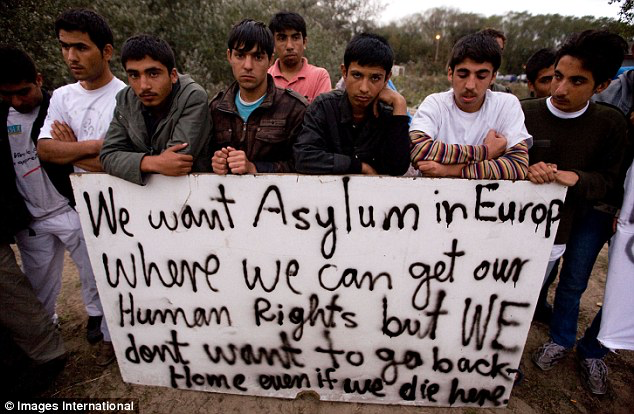 We want Asylum in Europ
Where we can get our
Human Rights but WE
dont want to go back-
Home even if we die here.
© Images International